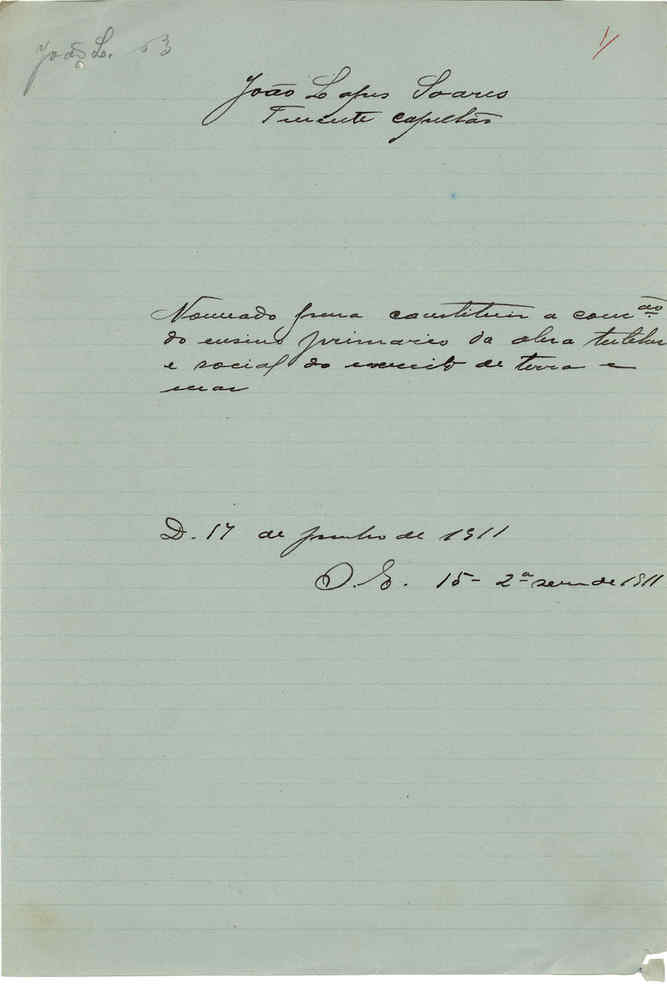 João L. 53
1/
João Lopes Soares
Tenente capellão
Nomeado para constituir a com.ão
do ensino primario da obra tutelar
e social do exercito de terra e
mar
D. 17 de junho de 1911
O. E. 15 - 2ª serie de 1911